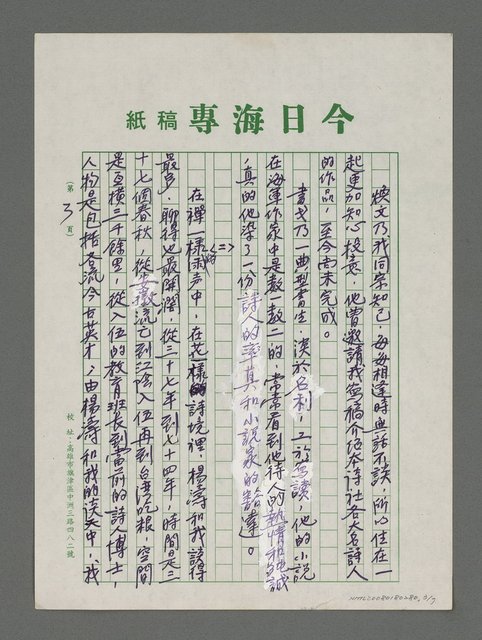 今日海專稿紙
煥文乃我同宗知己，每每相逢時無話不談，所以住在一
起更加知心投意，他曾邀請我寫稿介紹本詩社各大名詩人
的作品，至今尚未完成。
書戈乃一典型書生，淡於名利，工於寫讀，他的小說
在海軍作家中是數一數二的，常常看到他待人的熱情和純誠
，真的他染了一份詩人的率真和小說家的豁達。
<二>
在禪一樣的雨聲中，在花樣的詩境裡，楊濤和我談得
最多，聊得也最開濶，從三十七年到七十四年，時間是三
十七個春秋，從安徽流亡到江陰入伍再到台灣吃糧，空間
是直橫三千餘里，從入伍的教育班長到當前的詩人博士，
人物是包括名流今古英才，由楊濤和我的談天中，我
(第3頁)
校址：高雄市旗津區中洲三路四八二號